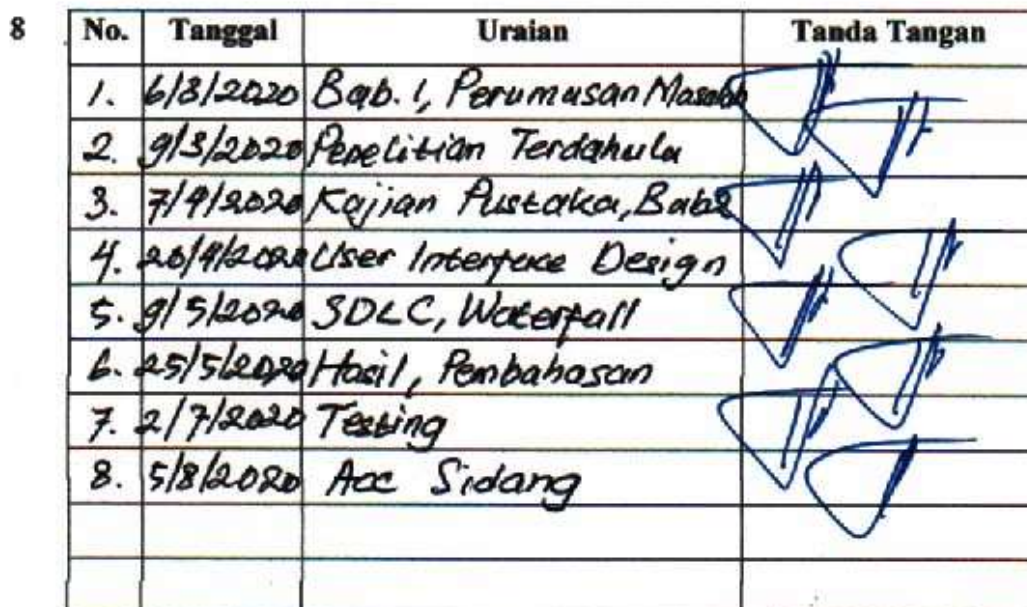 8
No. Tanggal Uraian Tanda Tangan
1. 6/3/2020 Bab. 1, Perumusan Masalah
2. 9/3/2020 Penelitian Terdahulu
3. 7/4/2020 Kajian Pustaka, Bab2
4. 20/4/2020 User Interface Design
5. 9/5/2020 SDLC, Waterfall
6. 25/5/2020 Hasil, Pembahasan
7. 2/7/2020 Testing
8. 5/8/2020 Acc Sidang